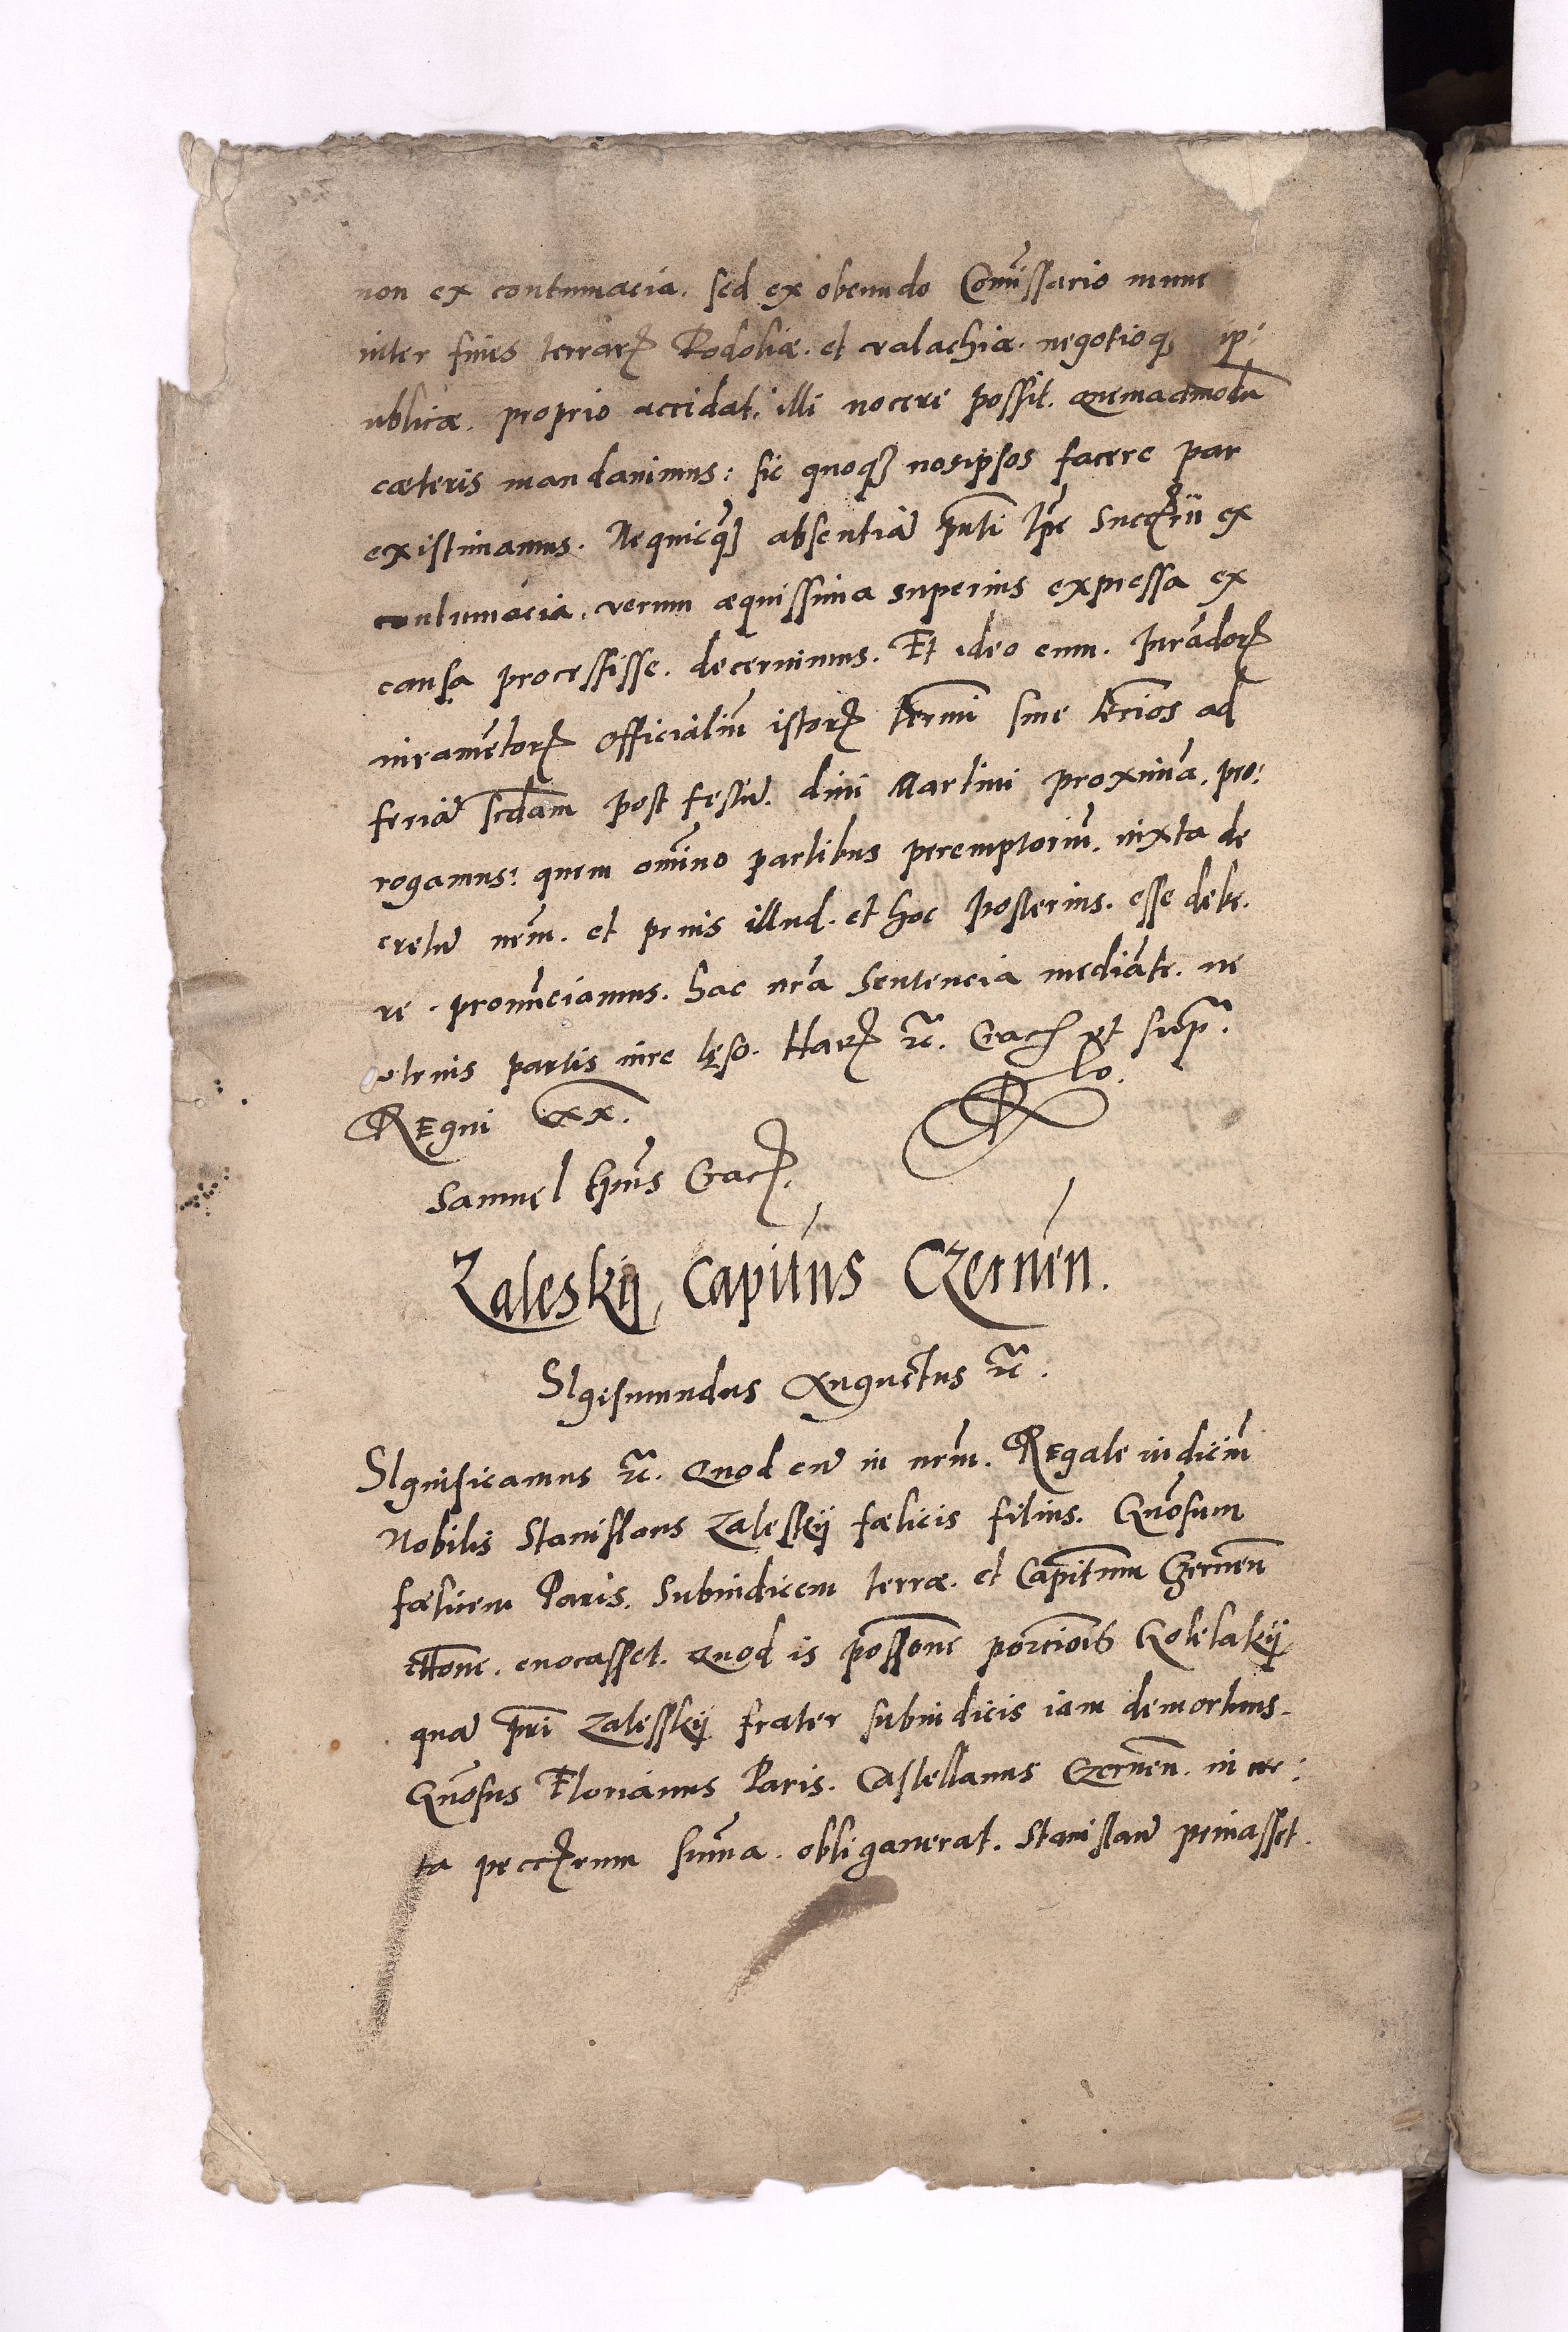 non ex contumacia. sed ex obeundo Com̃issario mune
inter fines terrarꝫ Podoliæ. et valachiæ. negotioqꝫ
ublicæ. proprio accidat. illi nocere possit. quemadmodũ
cæteris mandauimus: sic quoqꝫ nosipsos facere par
existimamus. Nequicq̃ absentiã pñti
contumacia. verum æquissima superius expressa ex
causa processisse. decernimus. Et ideo eum. Jurãdorꝫ
iuramẽtorꝫ officialiũ istorꝫ termi siue ad
feriã scdam post festũ. diui Martini proximã. pro:
rogamus: quem om̃ino partibus peremptoriũ. iuxta de
cretũ nr̃m. et prius illud. et hoc posterius. esse debe.
re. pronũciamus. hac nr̃a Sentencia mediãte. ne
utrius partis iure lęso. Harꝫ ꝛc̃. Crac̃ ut sup̃.
Regni xx. Ro.
Samuel Ep̃us Crac̃.
Zaleskij, Capitñus Czernen̄.
SIgismundus Augustus ꝛc̃.
SIgnificamus ꝛc̃. Quod cũ in nr̃m. Regale iudiciũ
Nobilis Stanislaus Zaleskij fœlicis filius. Gñosum
fœlicem Paris. Subiudicem terræ. et Capitñum Czernen̄
cit̃tione. euocasset. Quod is possone porcionis Golelakij
quã pri Zalesskij frater subiudicis iam demortuus.
Gñosus Florianus Paris. Castellanus Czernen̄. in cer:
ta pecc̃ꝫrum sum̃a. obligauerat. Stanislaũ priuasset.